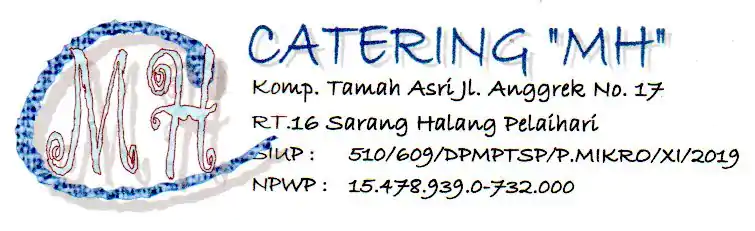 MH
CATERING "MH"
Komp. Tamah Asri Jl. Anggrek No. 17
RT.16 Sarang Halang Pelaihari
SIUP : 510/609/DPMPTSP/P.MIKRO/XI/2019
NPWP : 15.478.939.0-732.000